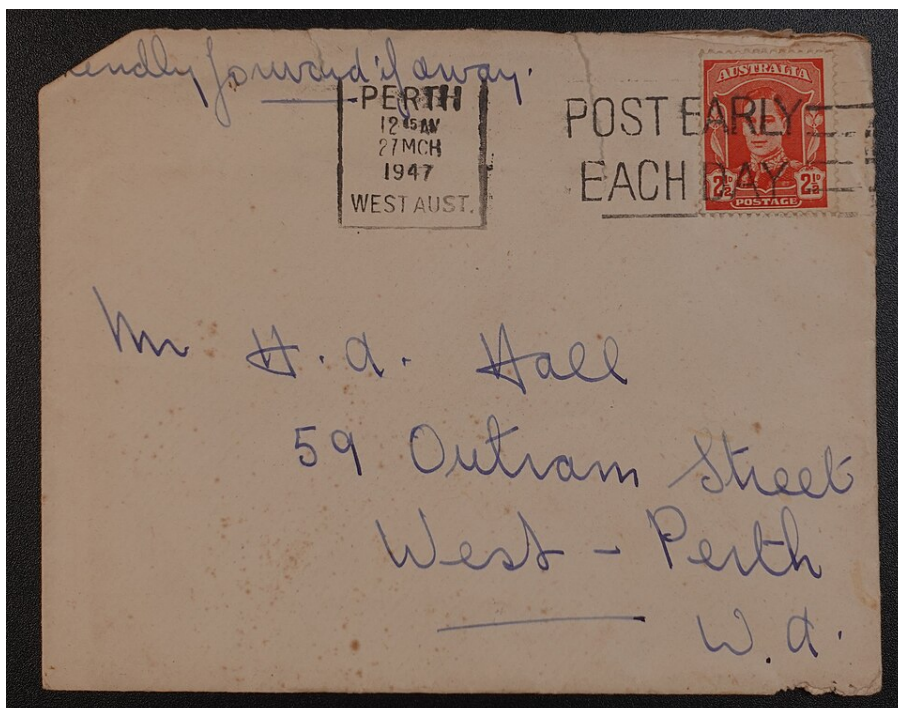 Kindly forward if away.
PERTH
12 45 AM
27 MCH
1947
WEST AUST.
POST EARLY
EACH DAY
AUSTRALIA
2½D 2½D
POSTAGE
Mr H. A. Hall
59 Outram Street
West - Perth
W. A.